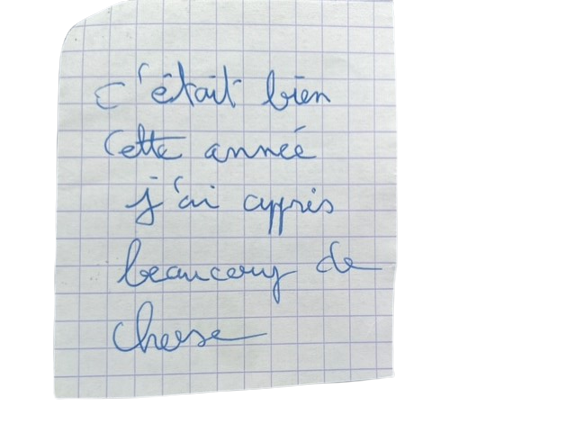 c'était bien
cette année
j'ai appris
beaucoup de
chose